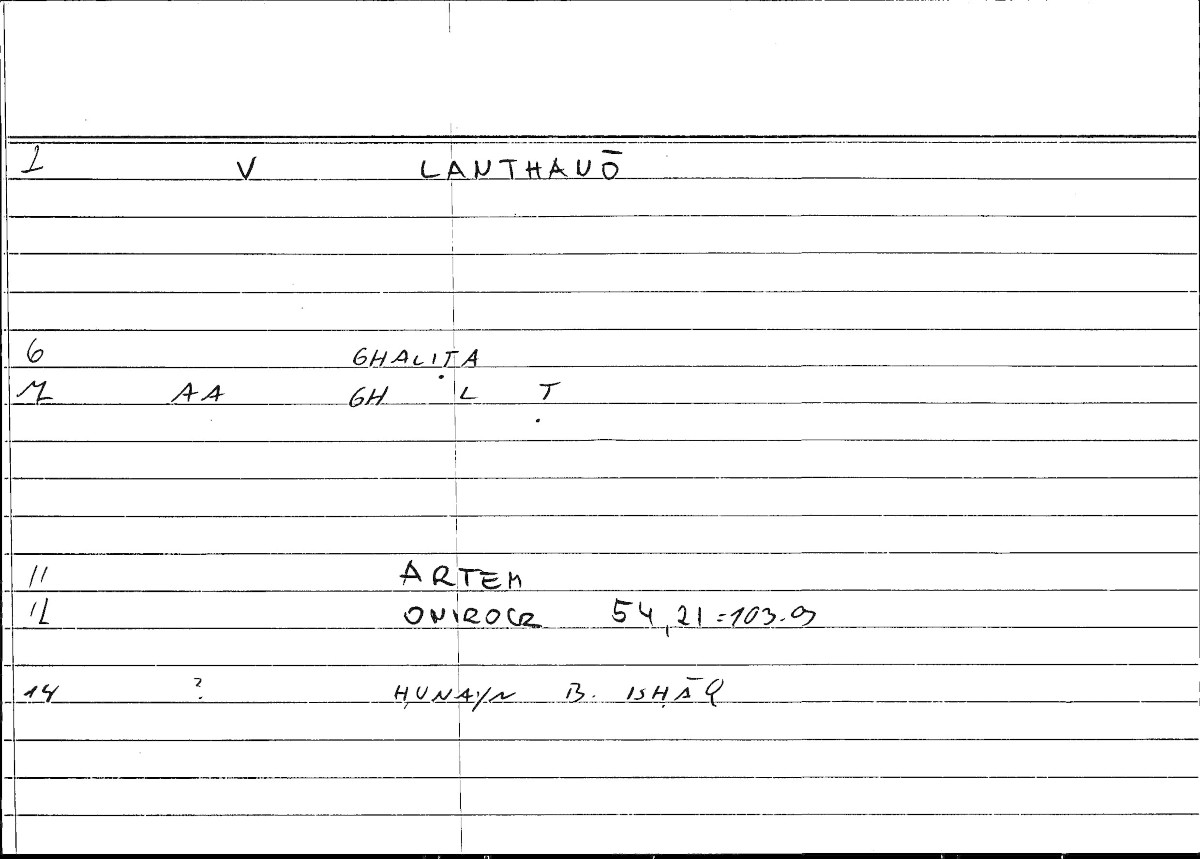 1 V LANTHANŌ
6 GHALIṬA
7 AA GH L Ṭ
11 ARTEM
12 ONIROCR 54,21=103.9
14 ? ḤUNAYN B. ISḤĀQ